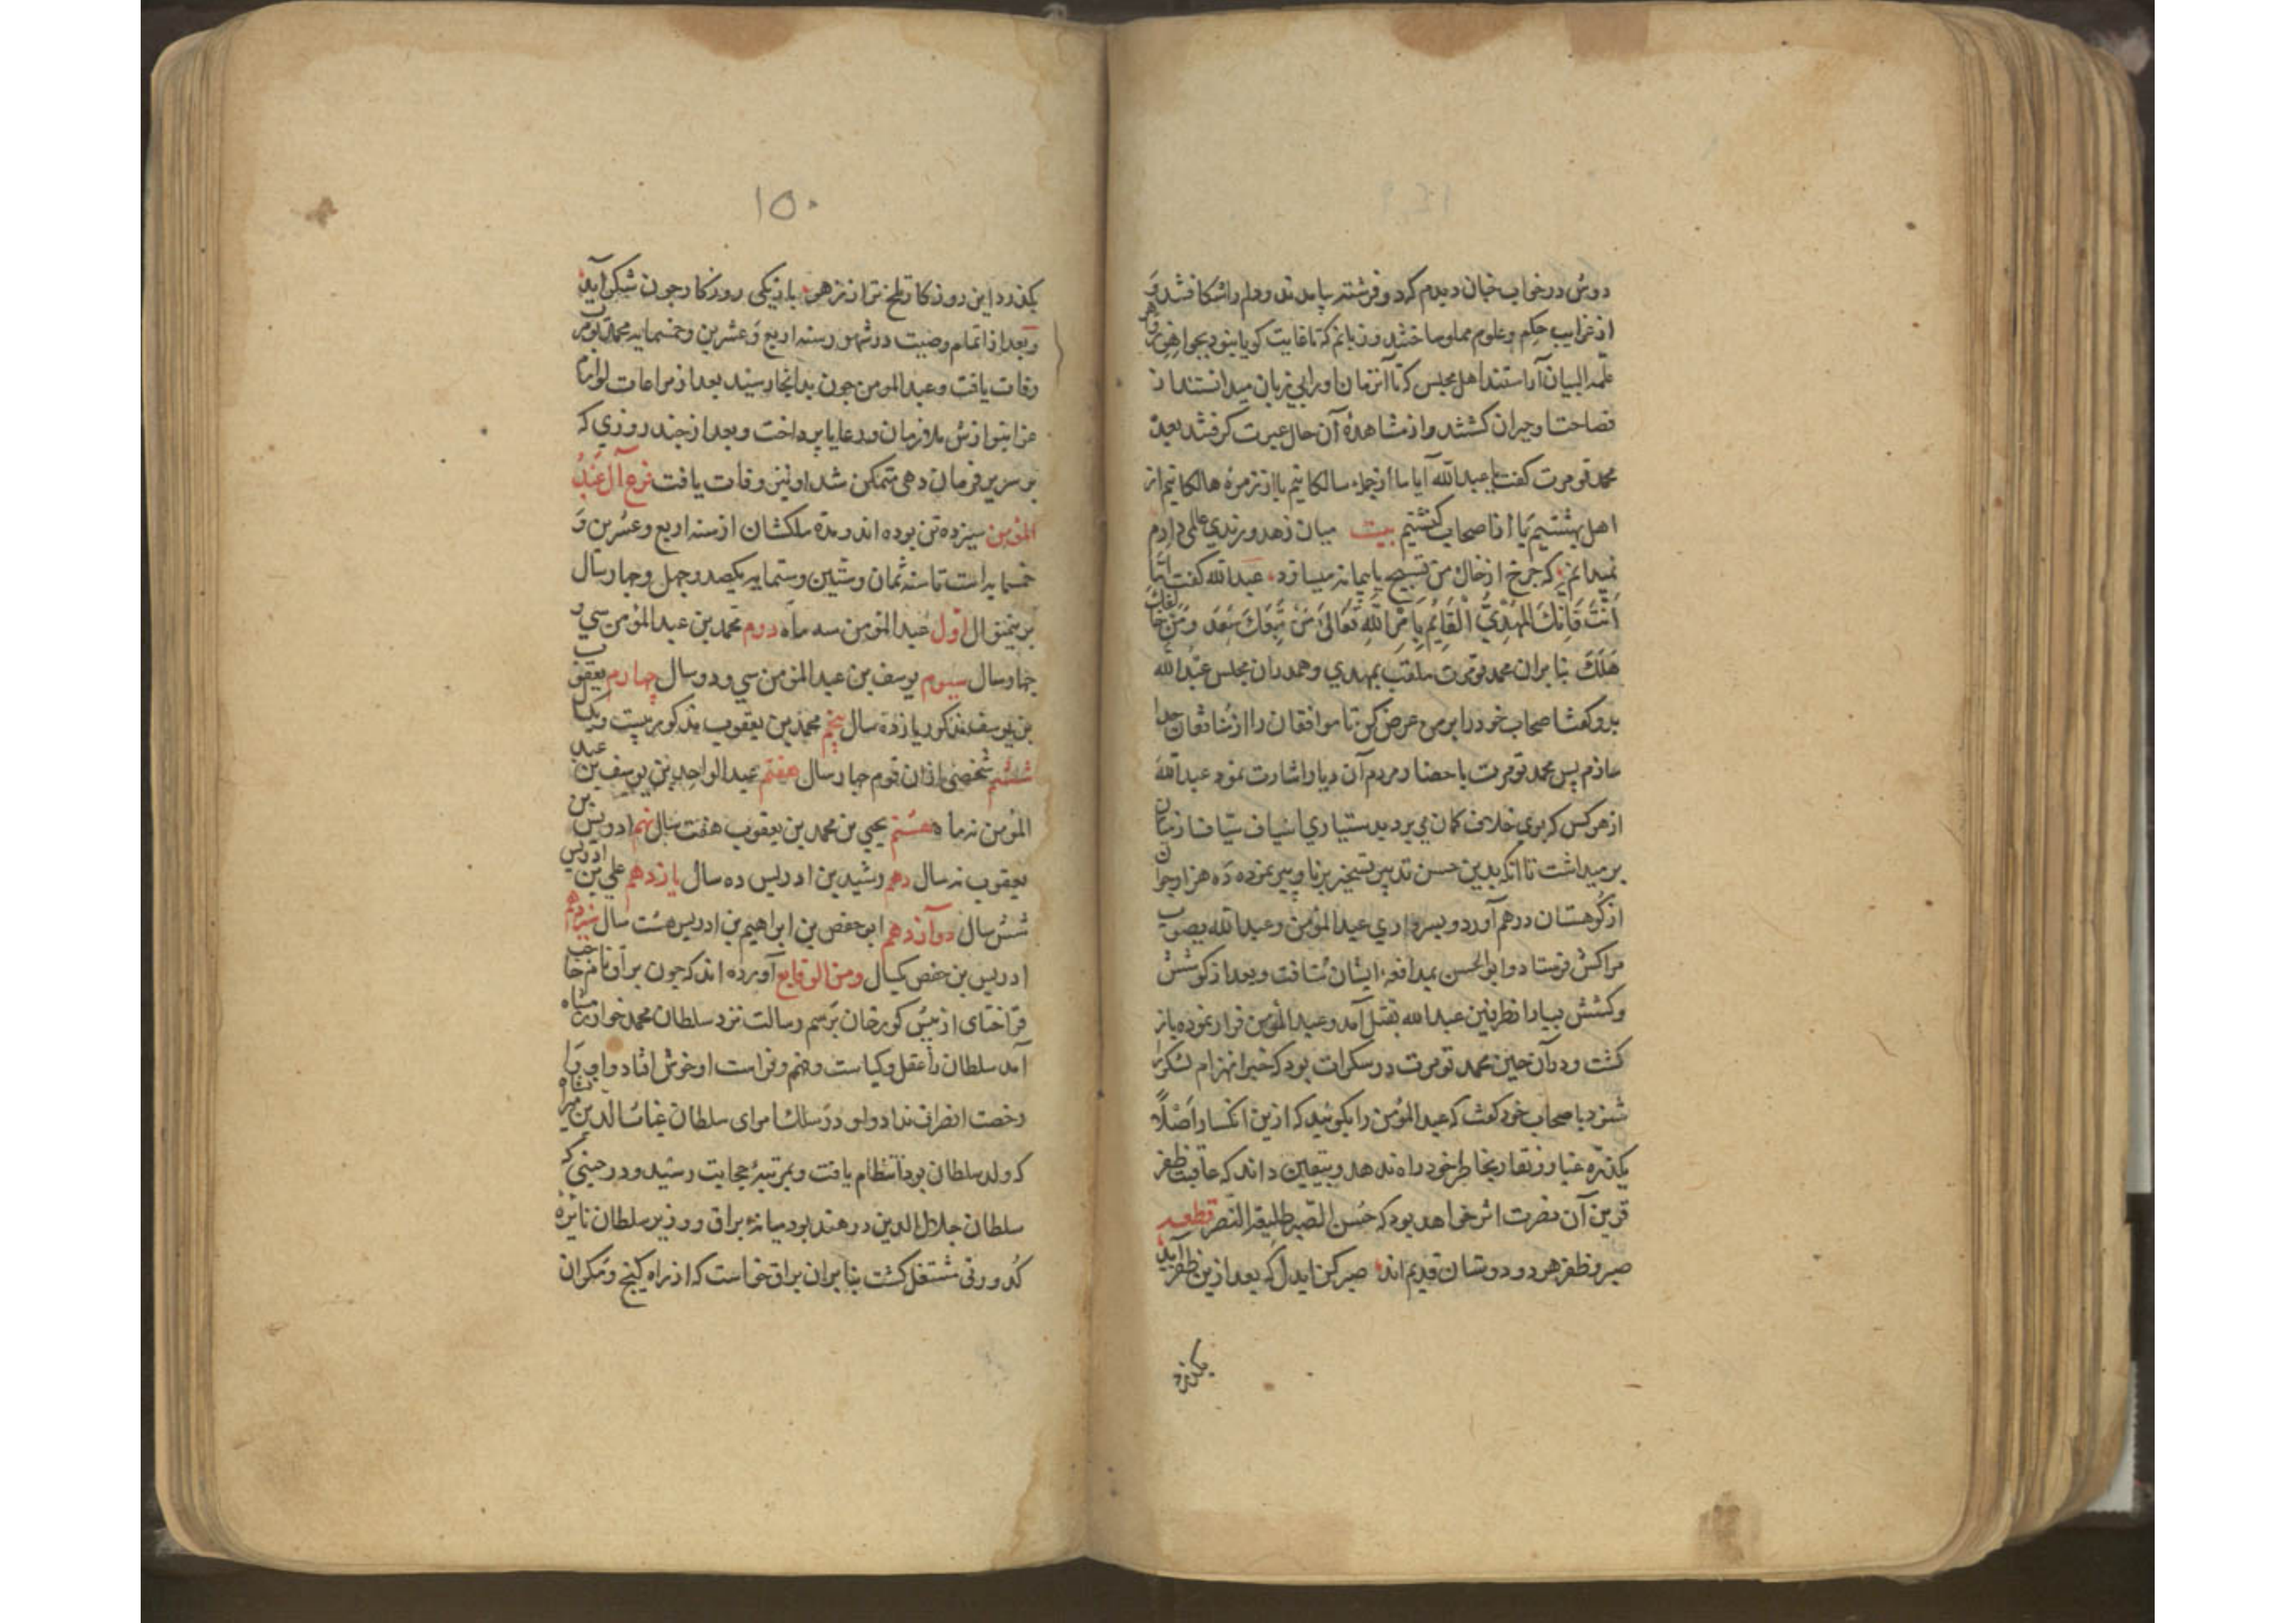 دوش در خواب چنان دیدم که دو فرشته بیامدند و دلم را بشکافتند و
از غرایب حکم و علوم مملو ساختند و زبانم که تا غایت کویا نبود بجواهر
علمه البیان آراستند اهل مجلس که تا آنزمان او را بی زبان میدانستند از
فصاحت او حیران کشتند و از مشاهدهٔ آن حال عبرت کرفتند بعده
محمد تومرت کفت یا عبدالله آیا ما از جملهٔ سالکانیم یا از زمرهٔ هالکانیم از
اهل بهشتیم یا از اصحاب کنشتیم بیت میان زهد و رندی عالمی دارم
نمیدانم که چرخ از خاک من تسبیح یا پیمانه میسازد عبدالله کفت اما
انت فانک المهدی القایم بامر الله تعالی من تبعک سعد و من خالفک
هلک بنابران محمد تومرت ملقب بمهدی و همدران مجلس عبدالله
بدو کفت اصحاب خود را بر من عرض کن تا موافقان را از منافقان جدا
سازم پس محمد تومرت باحضار مردم آن دیار اشارت نمود عبدالله
از هر کس که بوی خلاف کمان می برد بدستیاری اسیاف سیاف از میان
بر میداشت تا آنکه بدین حسن تدبیر تسخیر برنا و پیر نموده ده هزار جوان
از کوهستان درهم آورد و بسرداری عبد المؤمن و عبدالله بصوب
مراکش فرستاد و ابو الحسن بمدافعهٔ ایشان شتافت و بعد از کوشش
و کشش بسیار از طرفین عبدالله بقتل آمد و عبد المؤمن فرار نموده باز
کشت و در آن حین محمد تومرت در سکرات بود که خبر انهزام لشکر
شنود با صحاب خود کفت که عبد المؤمن را بکوئید که ازین انکسار اصلا
یکذره غبار و نقار بخاطر خود راه ندهد و بیقین داند که عاقبت ظفر
قرین آن نصرت اثر خواهد بود که حسن الصبر طلیعة النصر قطعه
صبر و ظفر هر دو دوستان قدیم اند صبر کن ایدل که بعد ازین ظفر آید
بکذرد
۱۵۰
بکذرد این روزکار تلخ تر از زهر بار دیکر روزکار چون شکر آید
و بعد از اتمام وصیت در شهور سنه اربع و عشرین و خمسمایه محمد تومرت
وفات یافت و عبد المؤمن چون بدانجا رسید بعد از مراعات لوازم
عزا بنوازش ملازمان و رعایا پرداخت و بعد از چند روزی که
بر سریر فرمان دهی متمکن شد او نیز وفات یافت فرع آل عبد
المؤمن سیزده تن بوده اند و مدة ملکشان از سنه اربع و عشرین و
خمسمایه است تا سنه ثمان و ستین و ستمایه یکصد و چهل و چهار سال
برینمنوال اول عبد المؤمن سه ماه دوم محمد بن عبد المؤمن سی و
چهار سال سیوم یوسف بن عبد المؤمن سی و دو سال چهارم یعقوب
بن یوسف مذکور یازده سال پنجم محمد بن یعقوب مذکور بیست و یکسال
ششم شخصی از ان قوم چهار سال هفتم عبد الواحد بن یوسف بن عبد
المؤمن نه ماه هشتم یحیی بن محمد بن یعقوب هفت سال نهم ادریس بن
یعقوب نه سال دهم رشید بن ادریس ده سال یازدهم علی بن ادریس
شش سال دوازدهم ابو حفص بن ابراهیم بن ادریس هشت سال سیزدهم
ادریس بن حفص یکسال ومن الوقایع آورده اند که چون براق نام حاجب
قراختای از پیش کورخان برسم رسالت نزد سلطان محمد خوارزمشاه
آمد سلطان را عقل و کیاست و فهم و فراست او خوش افتاد و او را
رخصت انصراف نداد و او در سلک امرای سلطان غیاث الدین میرانشاه
که ولد سلطان بود انتظام یافت و بمرتبهٔ حجابت رسید و در حینی که
سلطان جلال الدین در هند بود میانهٔ براق و وزیر سلطان نایرهٔ
کدورتی مشتعل کشت بنابران براق خواست که از راه کیج و مکران